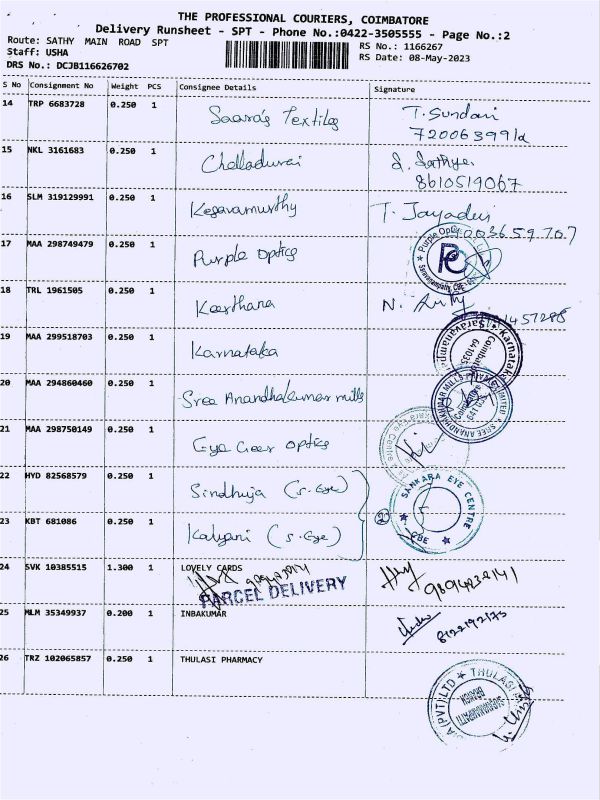 THE PROFESSIONAL COURIERS, COIMBATORE
Delivery Runsheet - SPT - Phone No.:0422-3505555 - Page No.:2
Route: SATHY MAIN ROAD SPT
RS No.: 1166267
Staff: USHA
RS Date: 08-May-2023
DRS No.: DCJB116626702
S No Consignment No Weight PCS Consignee Details Signature
14 TRP 6683728 0.250 1 Saara's Textiles T. Sundari
15 NKL 3161683 0.250 1 Chelladurai S. Sathya
8610519067
16 SLM 319129991 0.250 1 Kesavamurthy T. Jayadevi
17 MAA 298749479 0.250 1 Purple Optics Purple Optics
18 TRL 1961505 0.250 1 Keerthana N.
19 MAA 299518703 0.250 1 Karnataka Karnataka
Coimbatore
641035
20 MAA 294860460 0.250 1 Sree Anandhakumar mills
21 MAA 298750149 0.250 1 Eye Care Optics
22 HYD 82568579 0.250 1 Sindhuja (S. Eye) SANKARA EYE CENTRE
CBE
23 KBT 681086 0.250 1 Kalyani (S. Eye) 2
24 SVK 10385515 1.300 1 LOVELY CARDS
PARCEL DELIVERY
25 MLM 35349937 0.200 1 INBAKUMAR 8122192173
26 TRZ 102065857 0.250 1 THULASI PHARMACY THULASI
(PVT) LTD